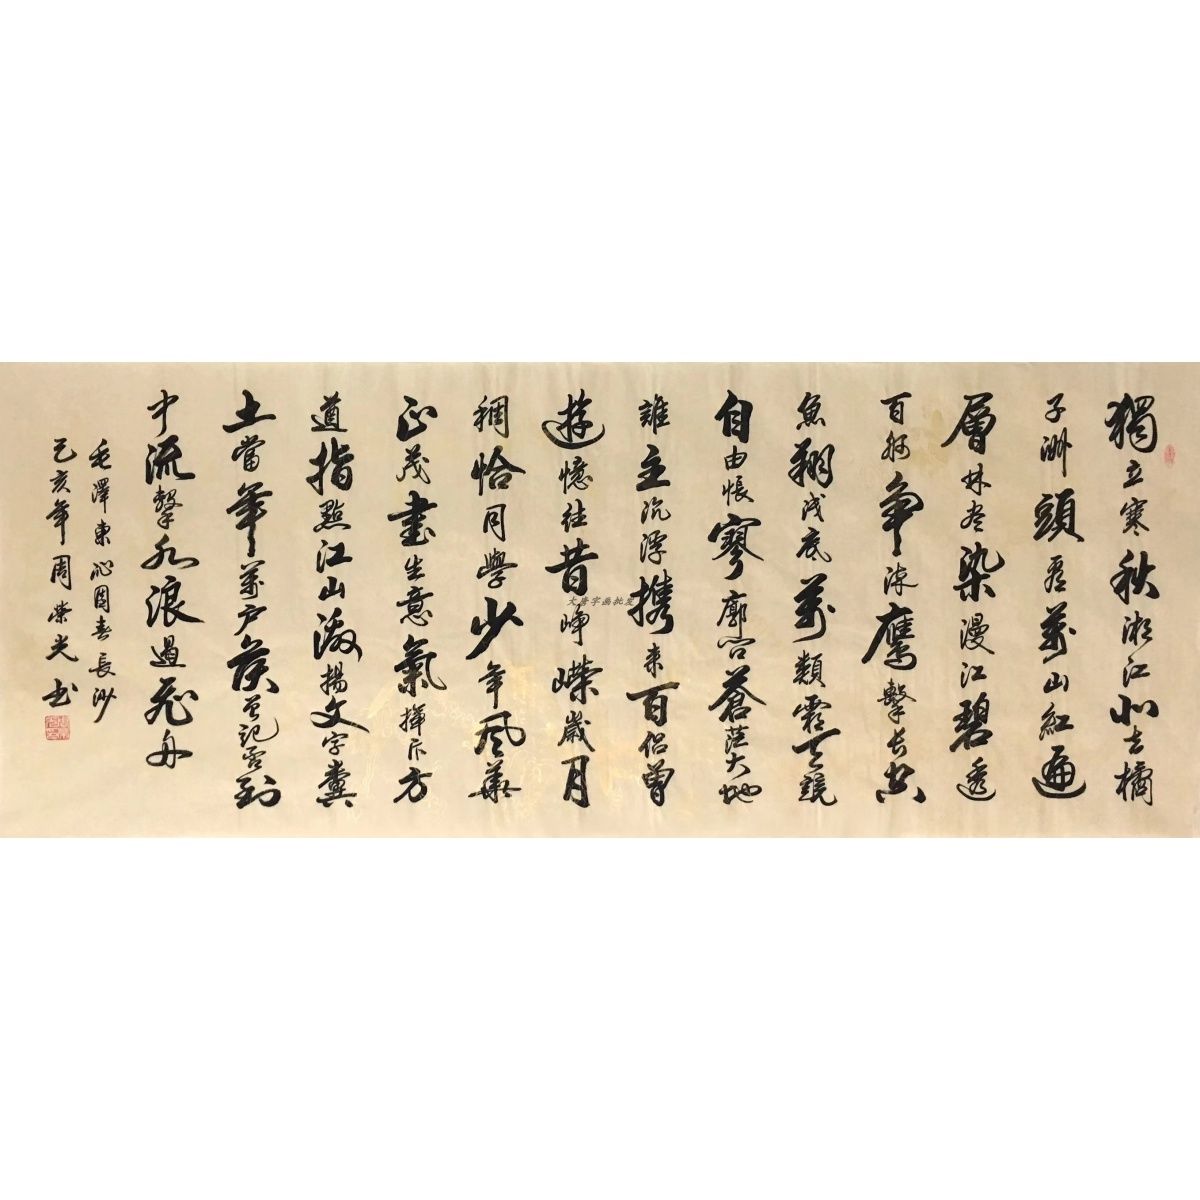 獨立寒秋湘江北去橘
子洲頭看萬山紅遍
層林盡染漫江碧透
百舸爭流鷹擊長空
魚翔淺底萬類霜天競
自由悵寥廓問蒼茫大地
誰主沉浮攜來百侶曾
遊憶往昔崢嶸歲月
稠恰同學少年風華
正茂書生意氣揮斥方
遒指點江山激揚文字糞
土當年萬戶侯曾記否到
中流擊水浪遏飛舟
毛澤東沁園春長沙
己亥年周榮光書
大唐字画批发